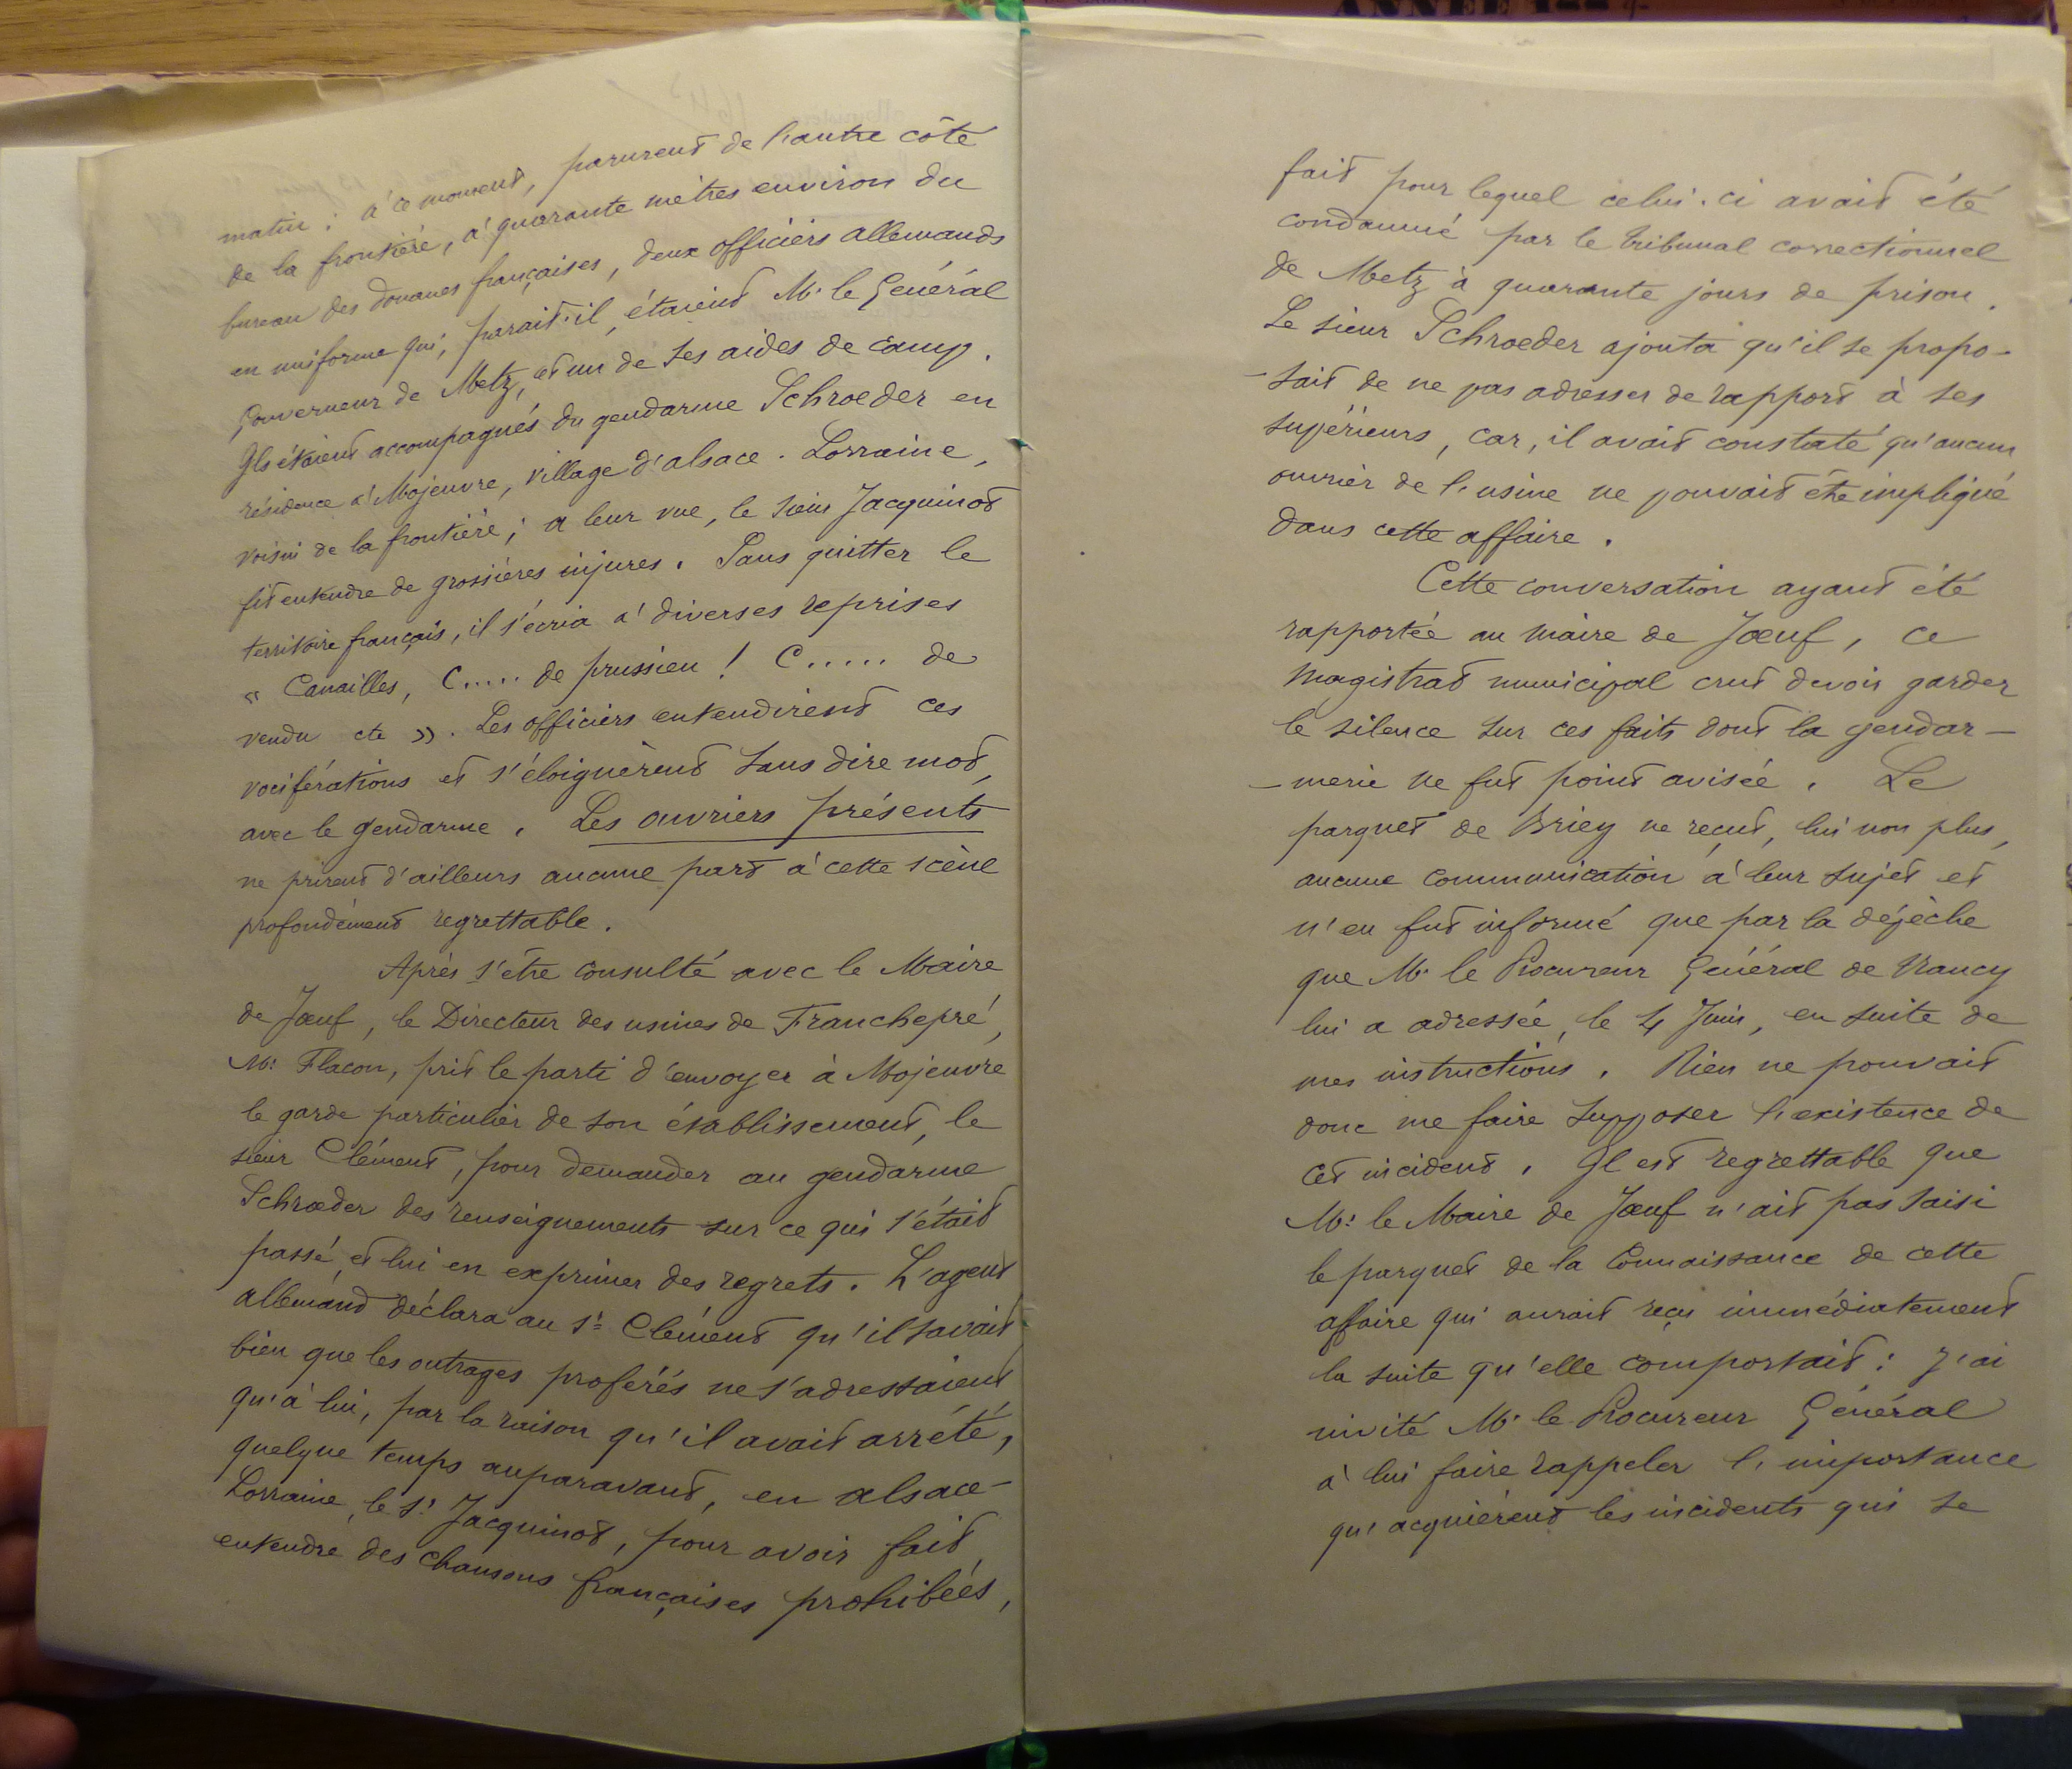 ANNÉE 188
matin : à ce moment, parurent de l'autre côté
de la frontière, à quarante mètres environ du
bureau des douanes françaises, deux officiers allemands
en uniforme qui, parait-il, étaient Mr le Général
Gouverneur de Metz, et un de ses aides de camp.
Ils étaient accompagnés du gendarme Schroeder en
résidence à Mojeuvre, village d'alsace-Lorraine,
voisin de la frontière ; a leur vue, le sieur Jacquinot
fit entendre de grossières injures. Sans quitter le
territoire français, il s'écria à diverses reprises
« Canailles, C..... de prussien ! C..... de
vendu etc ». Les officiers entendirent ces
vociférations et s'éloignèrent sans dire mot,
avec le gendarme. Les ouvriers présents
ne prirent d'ailleurs aucune part à cette scène
profondément regrettable.
Après s'être consulté avec le Maire
de Joeuf, le Directeur des usines de Franchepré,
Mr Flacon, prit le parti d'envoyer à Mojeuvre
le garde particulier de son établissement, le
sieur Clément, pour demander au gendarme
Schroeder des renseignements sur ce qui s'était
passé, et lui en exprimer des regrets. L'agent
allemand déclara au Sr Clément qu'il savait
bien que les outrages proférés ne s'adressaient
qu'à lui, par la raison qu'il avait arrêté,
quelque temps auparavant, en alsace-
Lorraine, le Sr Jacquinot, pour avoir fait
entendre des chansons françaises prohibées,
fait pour lequel celui-ci avait été
condamné par le tribunal correctionnel
de Metz à quarante jours de prison.
Le sieur Schroeder ajouta qu'il se propo-
-sait de ne pas adresser de rapport à ses
supérieurs, car, il avait constaté qu'aucun
ouvrier de l'usine ne pouvait être impliqué
dans cette affaire.
Cette conversation ayant été
rapportée au Maire de Joeuf, ce
magistrat municipal crut devoir garder
le silence sur ces faits dont la gendar-
-merie ne fut point avisée. Le
parquet de Briey ne reçut, lui non plus,
aucune communication à leur sujet et
n'en fut informé que par la dépèche
que Mr le Procureur Général de Nancy
lui a adressée, le 4 Juin, en suite de
mes instructions. Rien ne pouvait
donc me faire supposer l'existence de
cet incident. Il est regrettable que
Mr le Maire de Joeuf n'ait pas saisi
le parquet de la connaissance de cette
affaire qui aurait reçu immédiatement
la suite qu'elle comportait : j'ai
invité Mr le Procureur Général
à lui faire rappeler l'importance
qu'acquièrent les incidents qui se